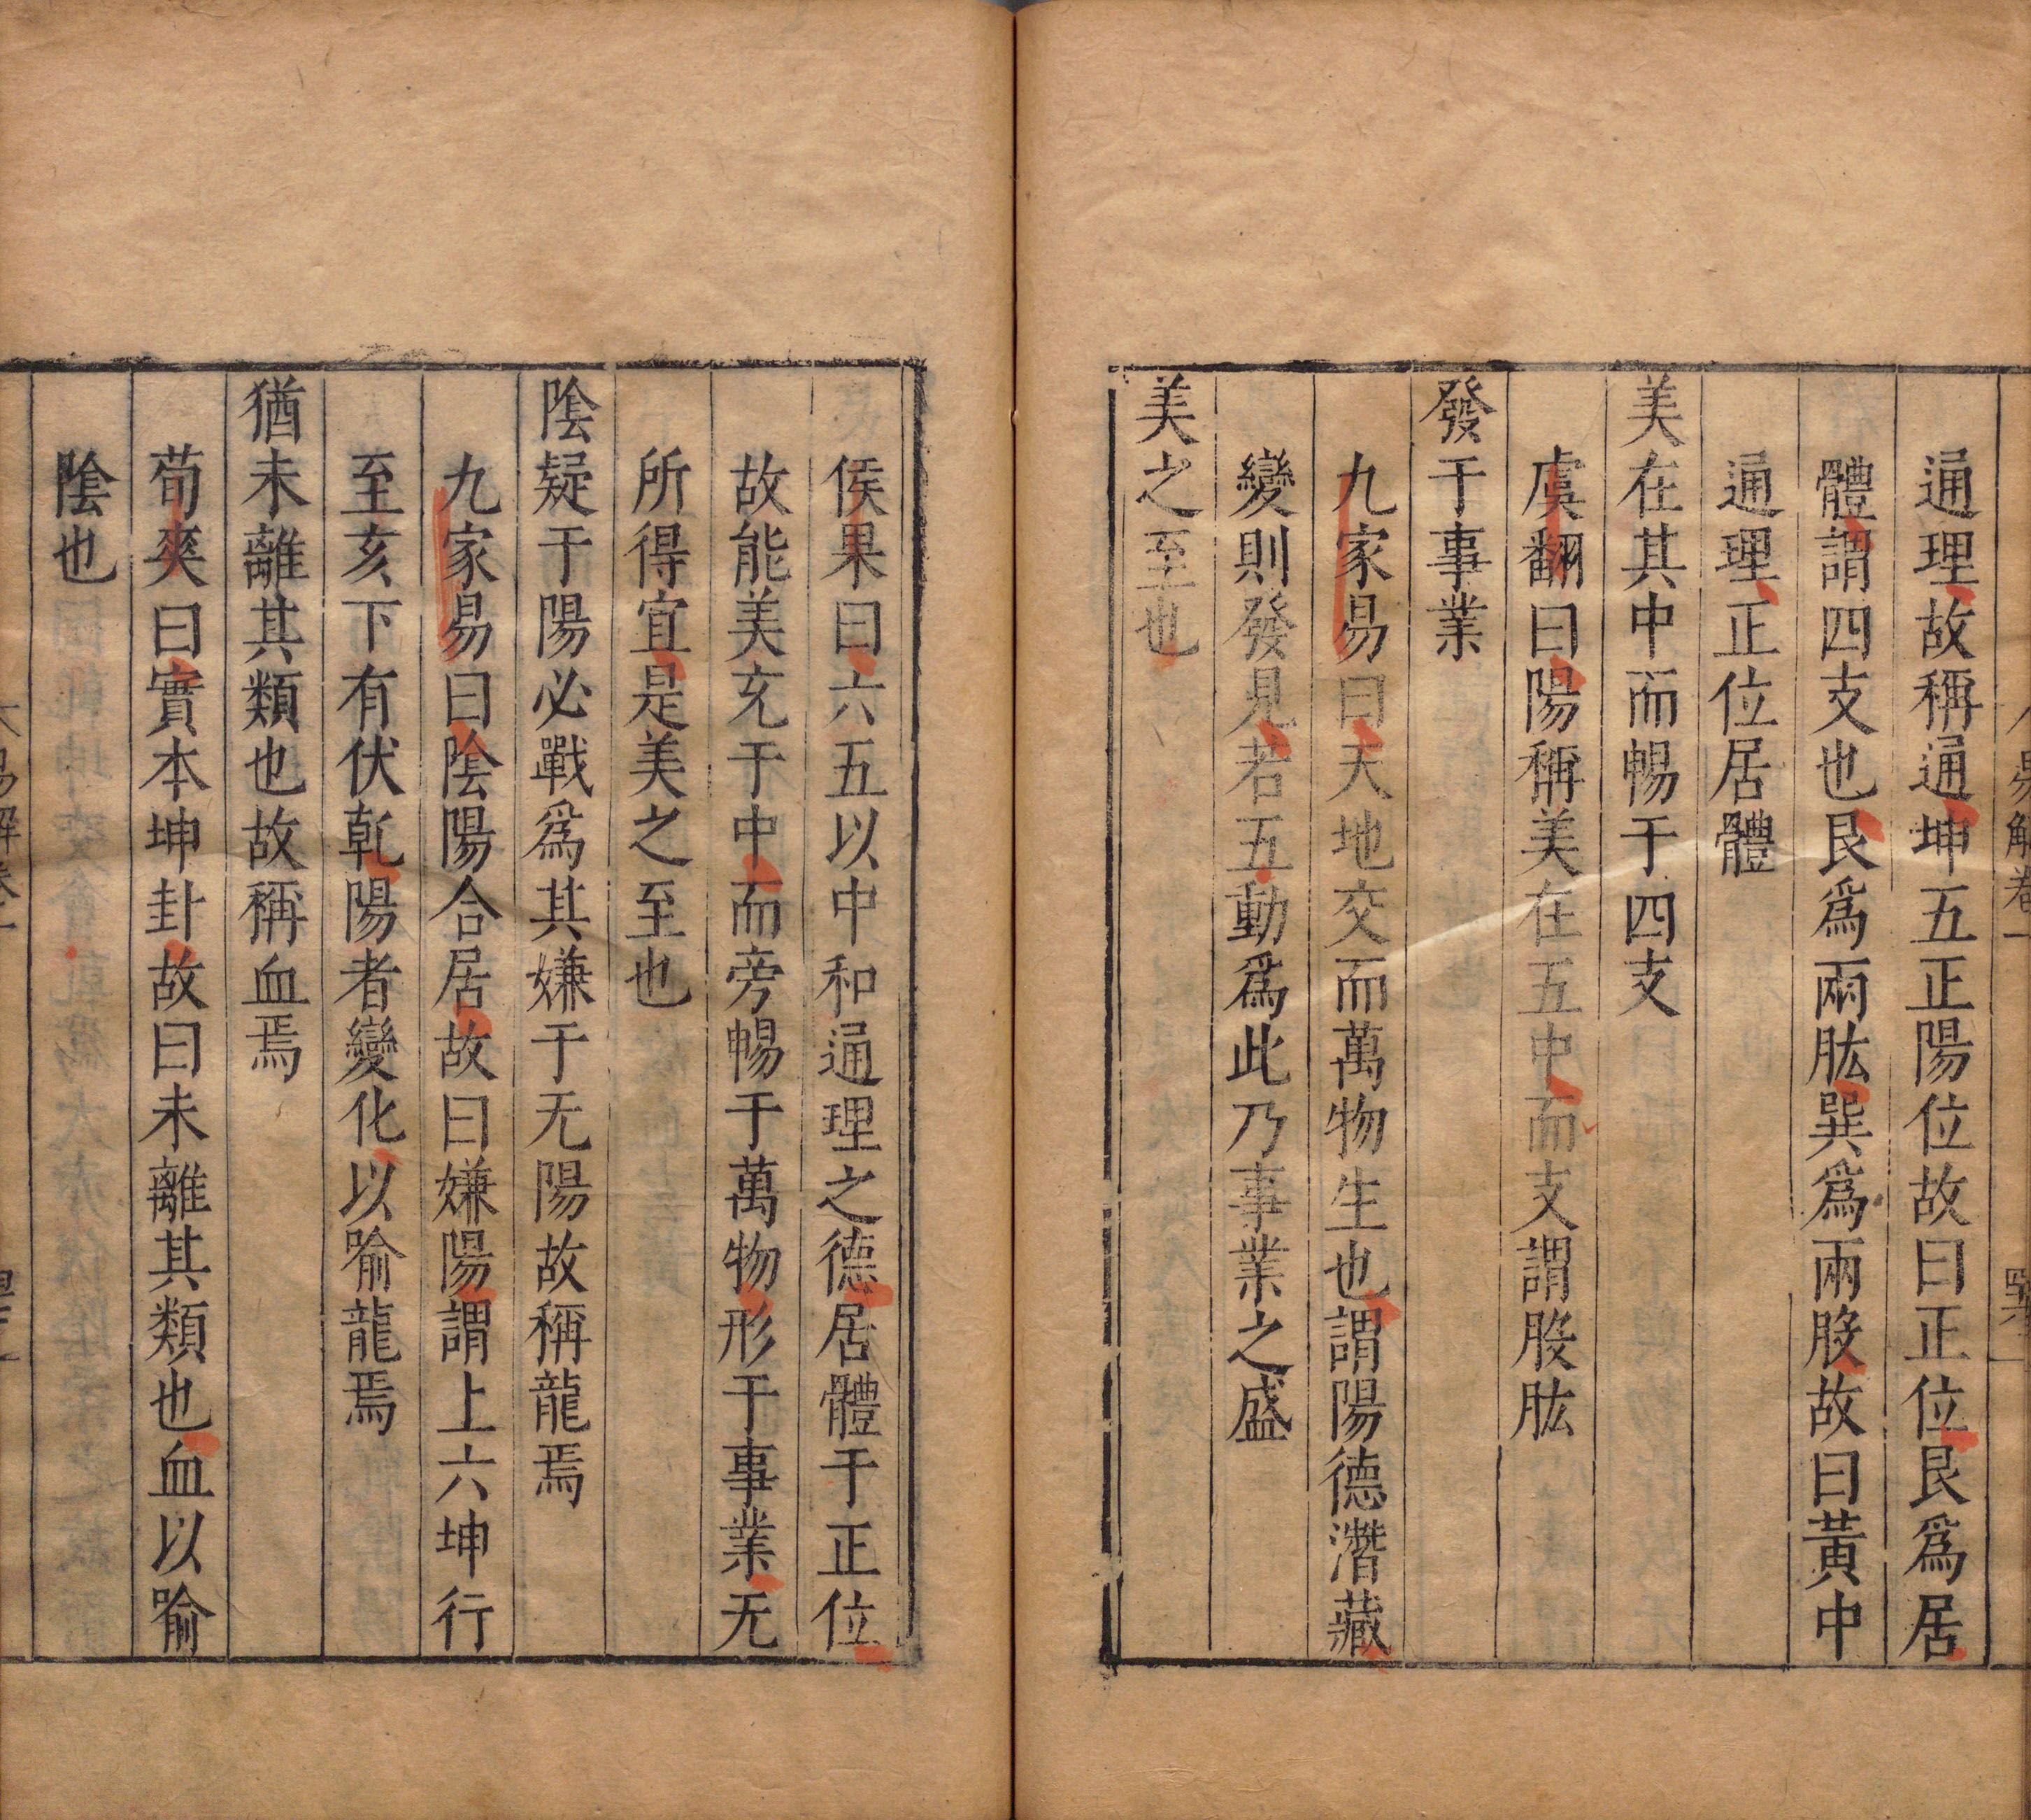 通理故稱通坤五正陽位故曰正位艮爲居
體謂四支也艮爲兩肱巽爲兩股故曰黃中
通理正位居體
美在其中而暢于四支
虞翻曰陽稱美在五中而支謂股肱
發于事業
九家易曰天地交而萬物生也謂陽德潛藏
變則發見若五動爲此乃事業之盛
美之至也
侯果曰六五以中和通理之德居體于正位
故能美充于中而旁暢于萬物形于事業无
所得宜是美之至也
陰疑于陽必戰爲其嫌于无陽故稱龍焉
九家易曰陰陽合居故曰嫌陽謂上六坤行
至亥下有伏乾陽者變化以喻龍焉
猶未離其類也故稱血焉
荀爽曰實本坤卦故曰未離其類也血以喻
陰也